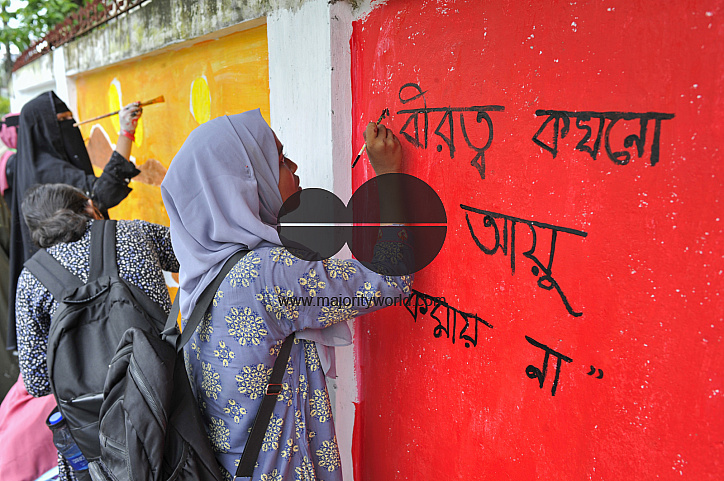 বীরত্ব কখনো
আয়ু
www.majorityworld.com
কমায় না”